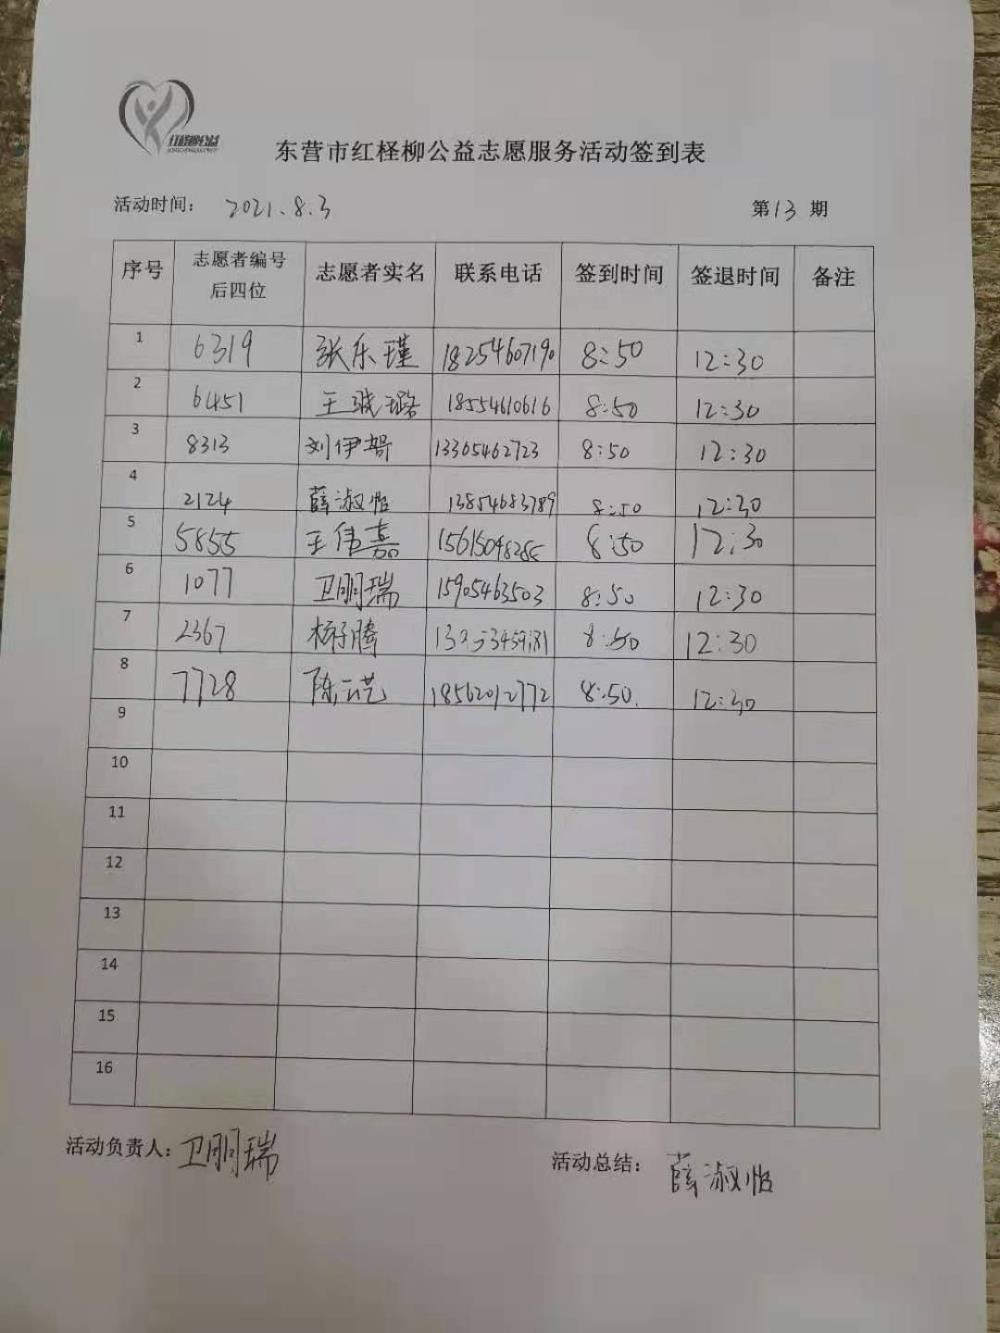 红柽柳公益
东营市红柽柳公益志愿服务活动签到表
活动时间： 2021.8.3 第13期
序号 志愿者编号后四位 志愿者实名 联系电话 签到时间 签退时间 备注
1 6319 张乐瑾 18254607190 8:50 12:30
2 6451 王 璐 18554610616 8:50 12:30
3 8313 刘伊 13305462723 8:50 12:30
4 2124 薛淑怡 13854683789 8:50 12:30
5 5855 王伟嘉 8:50 12:30
6 1077 卫朋瑞 15905463503 8:50 12:30
7 2367 杨子腾 8:50 12:30
8 7728 陈云艺 18562012772 8:50. 12:30
9
10
11
12
13
14
15
16
活动负责人：卫朋瑞 活动总结： 薛淑怡